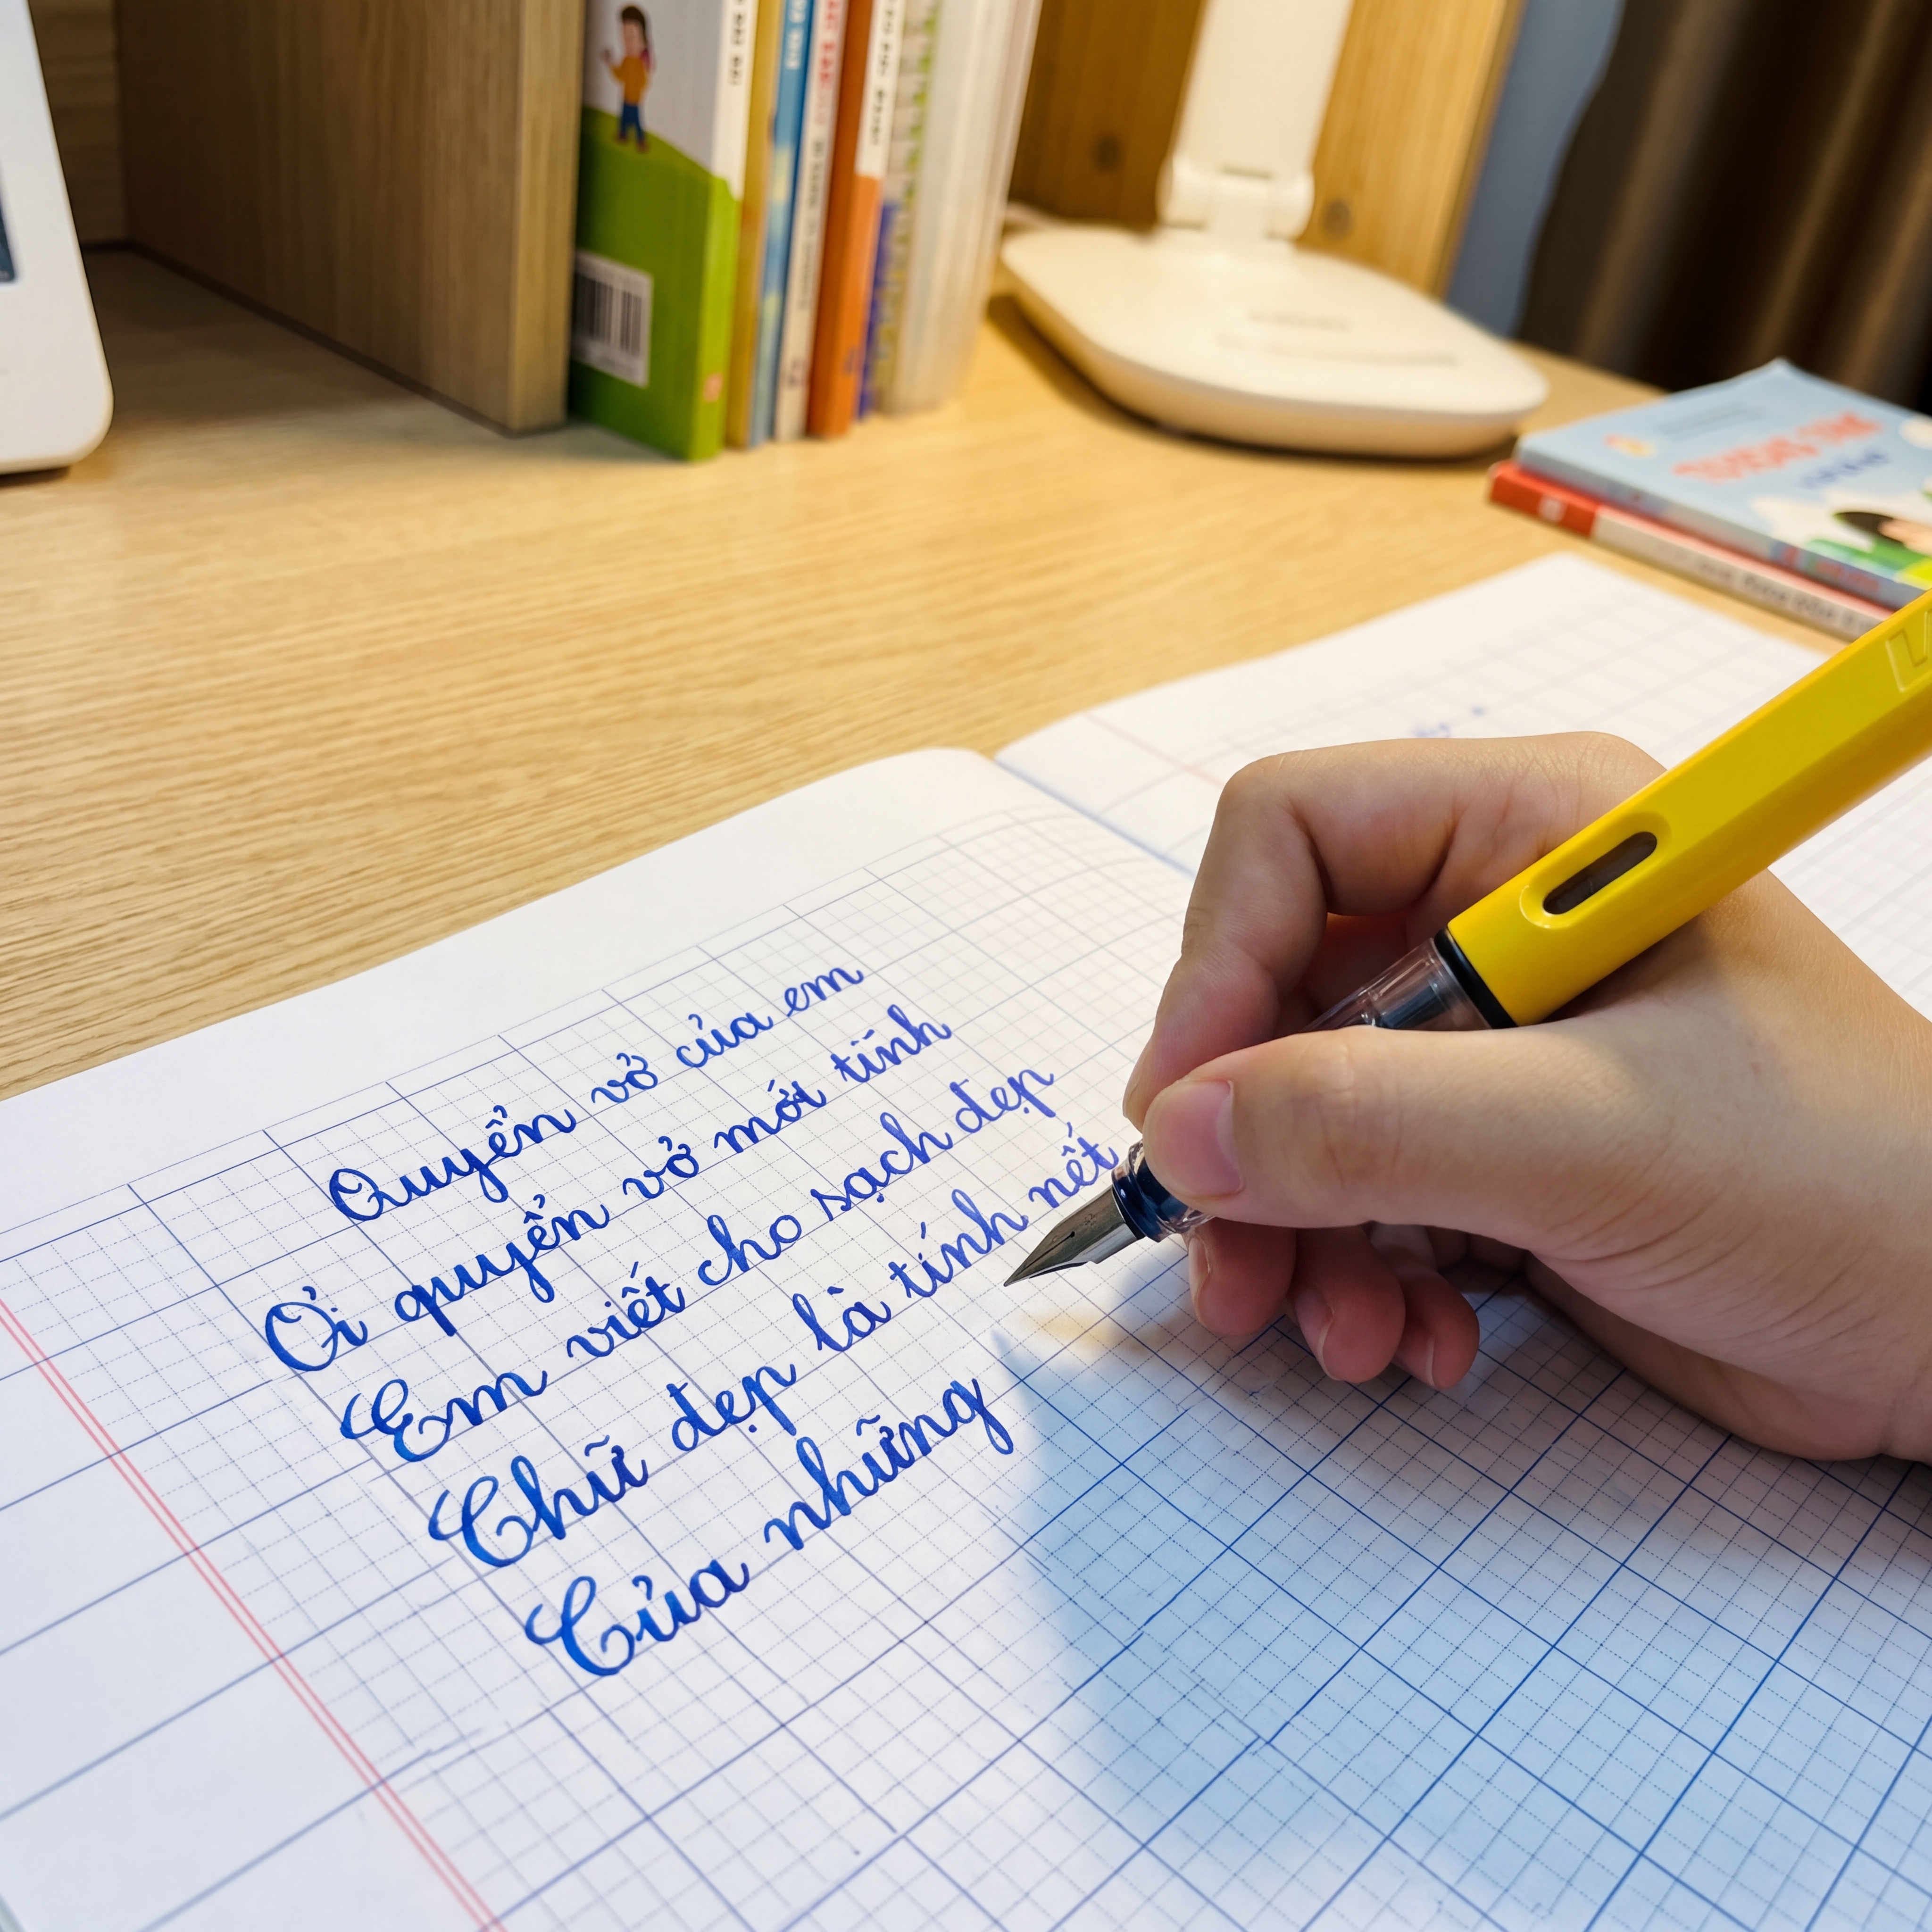 Quyển vở của em
Ơi quyển vở mới tính
Em viết cho sạch đẹp
Chữ đẹp là tính nết
Của những